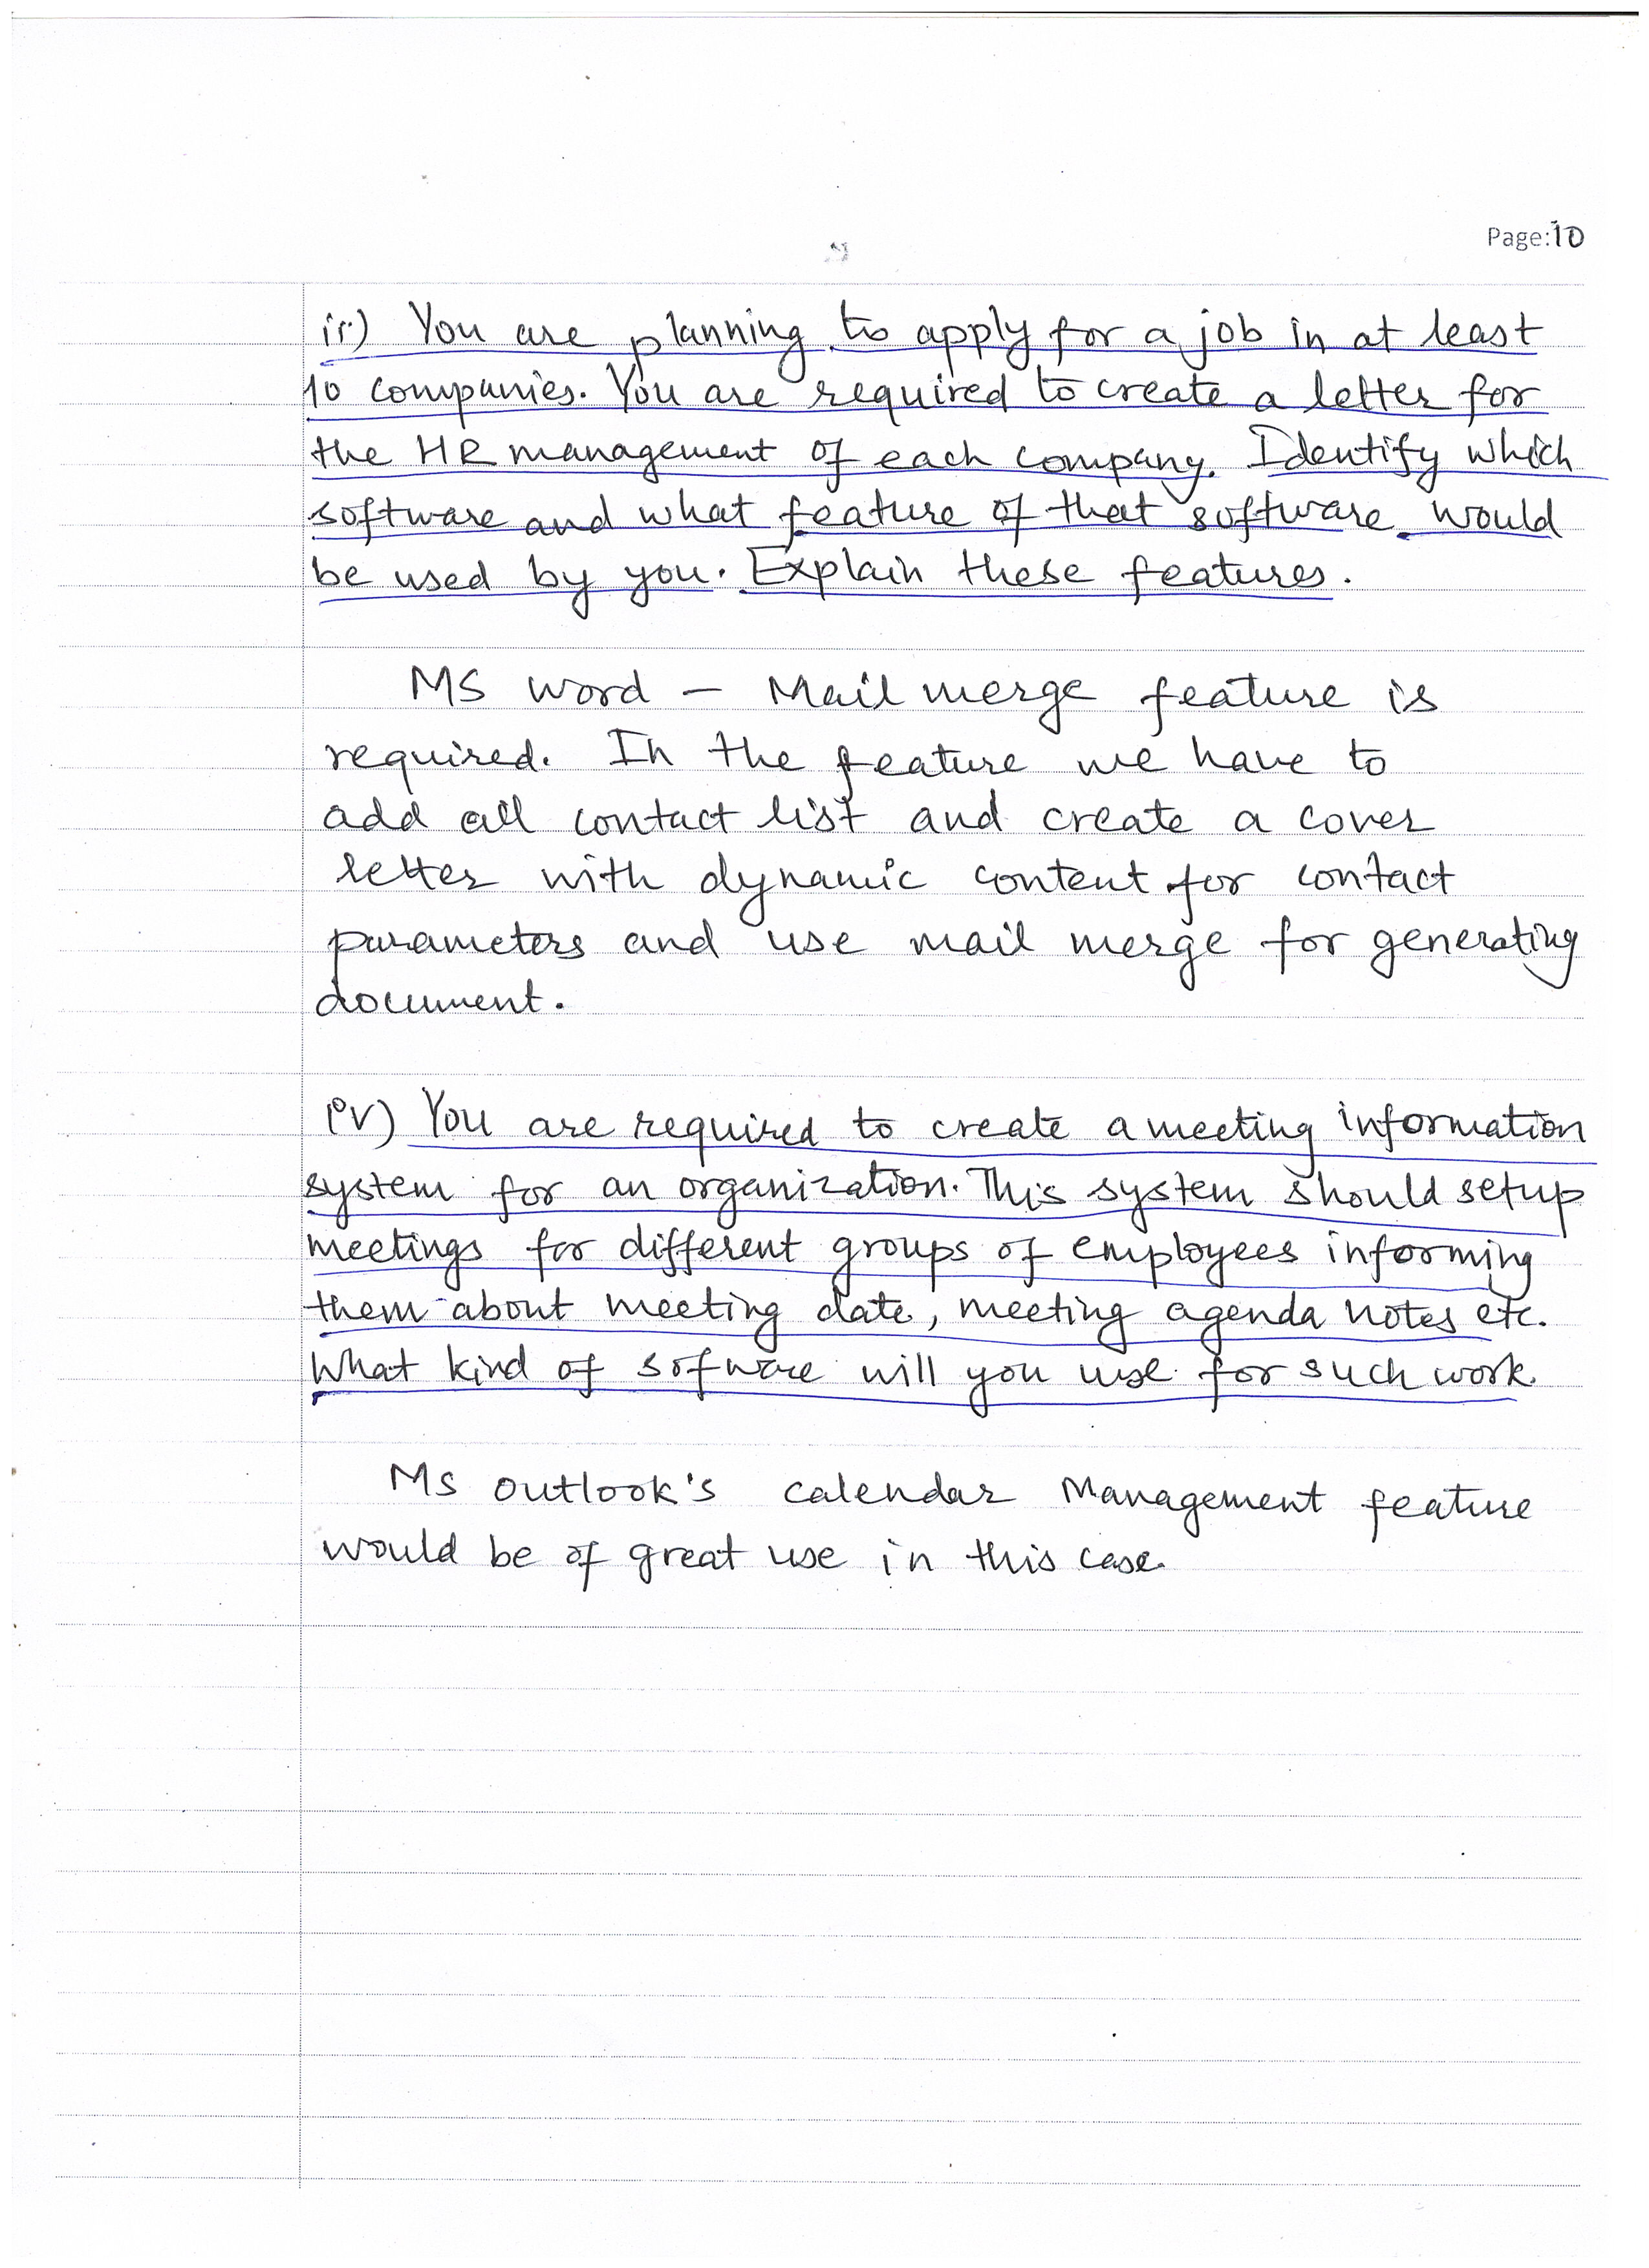 Page:10
ii) You are planning to apply for a job in at least
10 companies. You are required to create a letter for
the HR management of each company. Identify which
software and what feature of that software would
be used by you. Explain these features.
MS Word – Mail merge feature is
required. In the feature we have to
add all contact list and create a cover
letter with dynamic content for contact
parameters and use mail merge for generating
document.
iv) You are required to create a meeting information
system for an organization. This system should setup
meetings for different groups of employees informing
them about meeting date, meeting agenda notes etc.
What kind of sofware will you use for such work.
Ms outlook's calendar Management feature
would be of great use in this case.